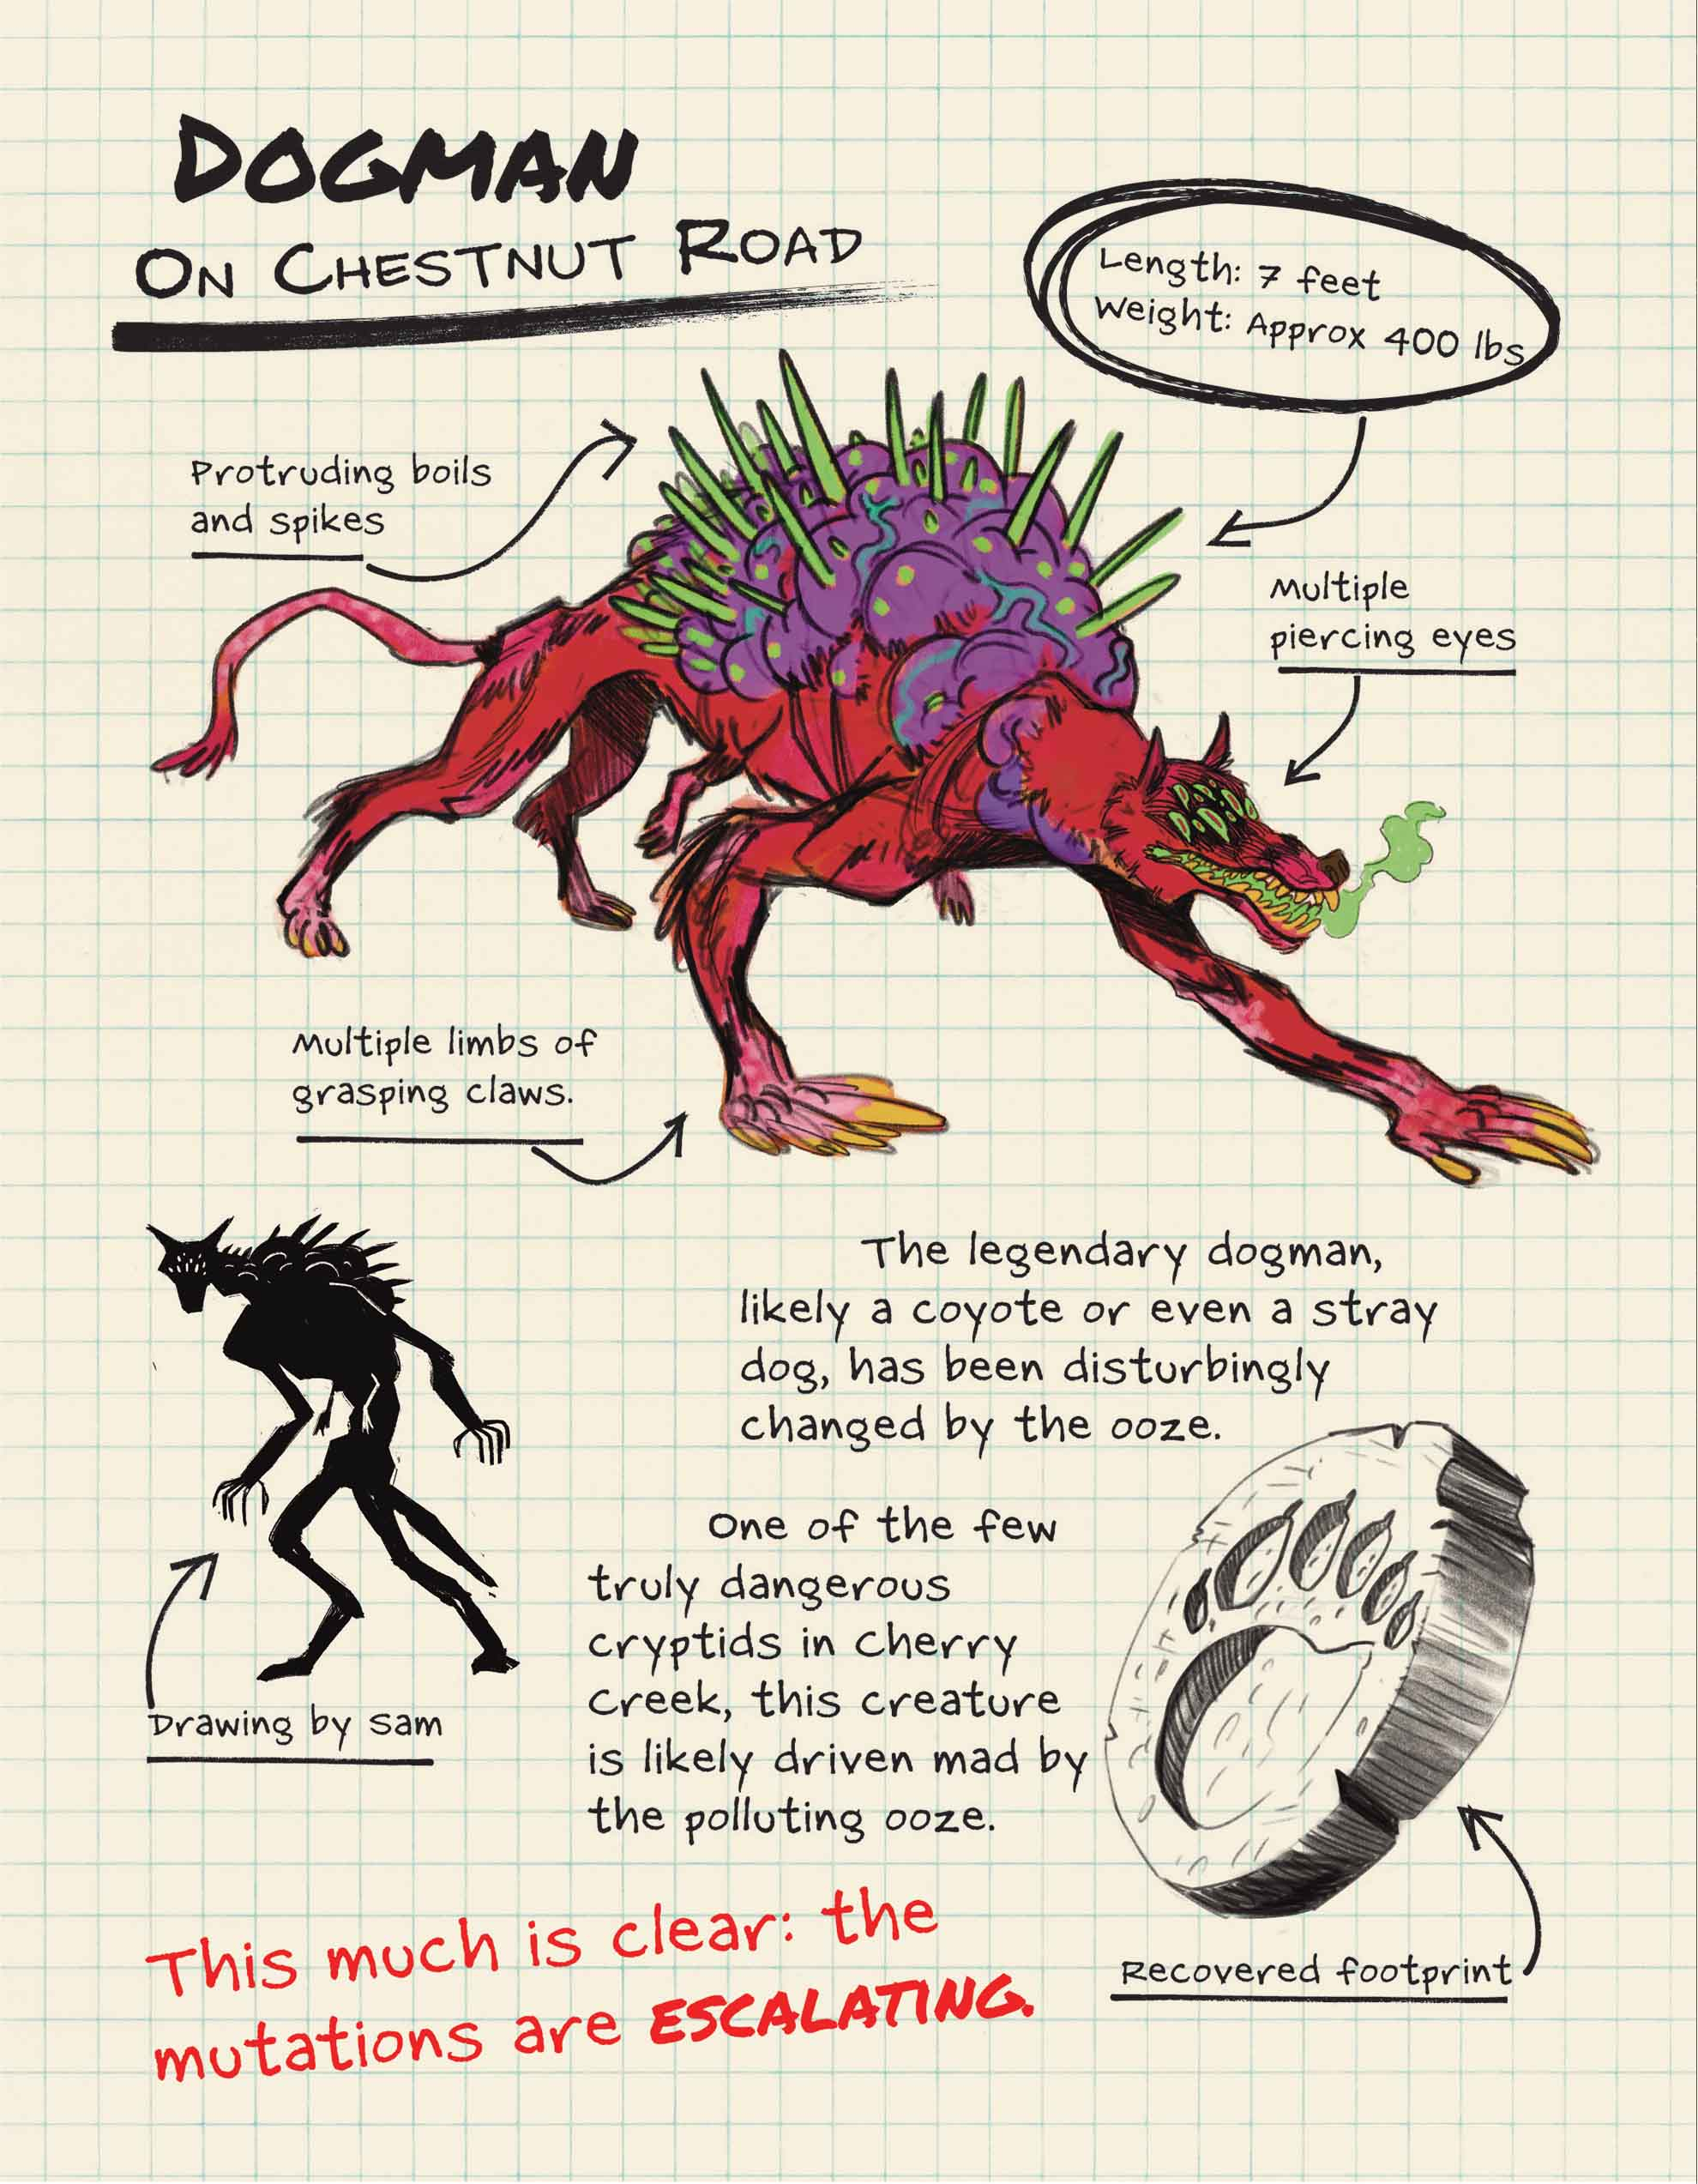 DOGMAN
ON CHESTNUT ROAD
Length: 7 feet
Weight: Approx 400 lbs
Protruding boils
and spikes
Multiple
piercing eyes
Multiple limbs of
grasping claws.
The legendary dogman,
likely a coyote or even a stray
dog, has been disturbingly
changed by the ooze.
One of the few
truly dangerous
cryptids in Cherry
Creek, this creature
is likely driven mad by
the polluting ooze.
Drawing by Sam
Recovered footprint
This much is clear: the
mutations are ESCALATING.